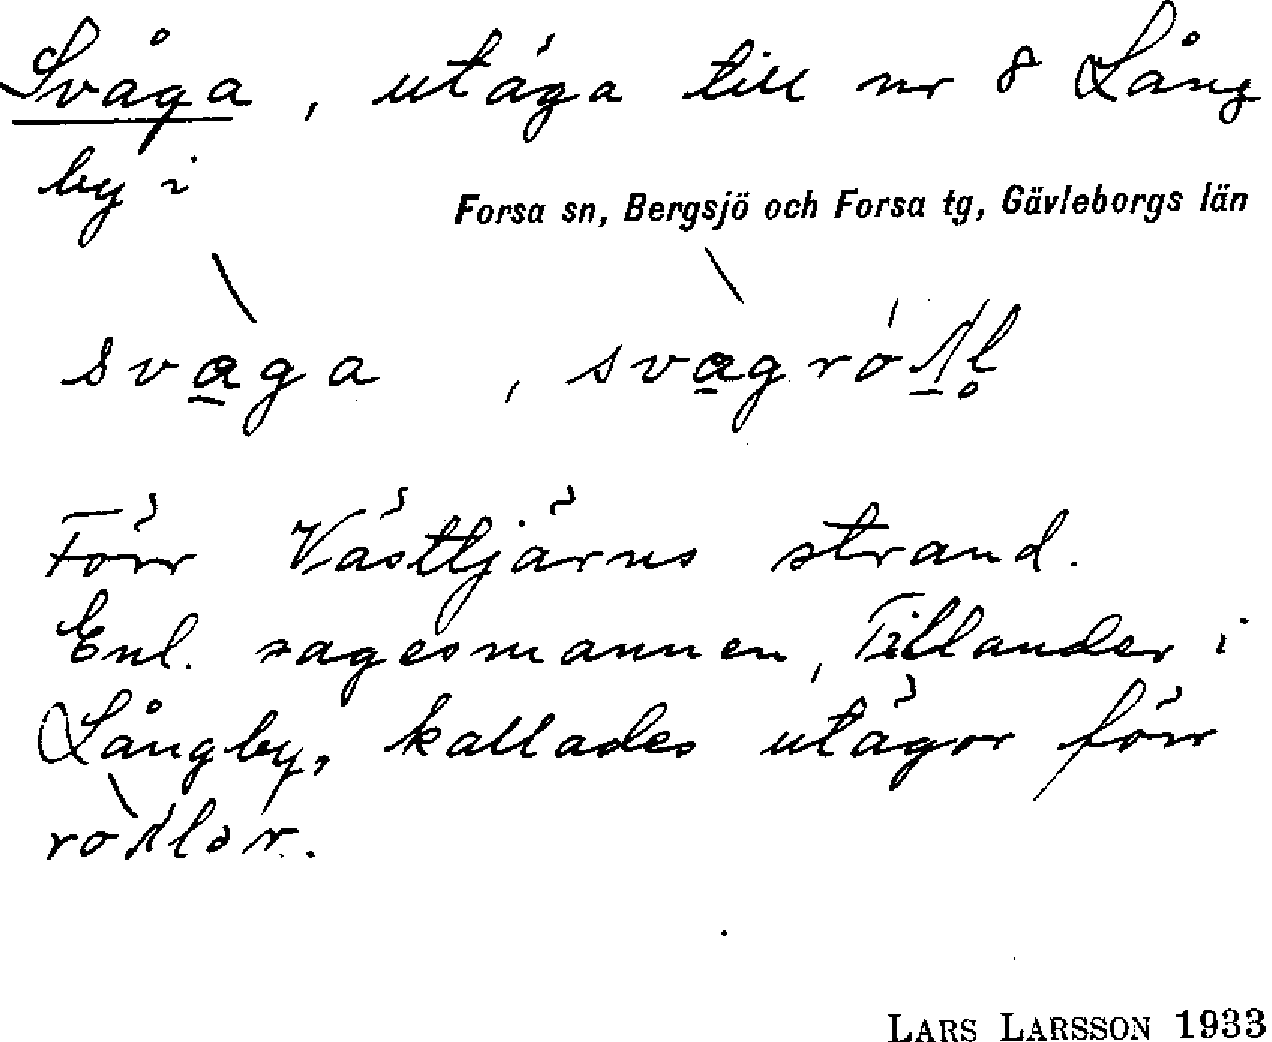 Svåga, utäga till nr 8 Lång
by i
Forsa sn, Bergsjö och Forsa tg, Gävleborgs län
svaga, svagröʌl̥
Förr Västtjärns strand.
Enl. sagesmannen, Tillander i
Långby, kallades utägor förr